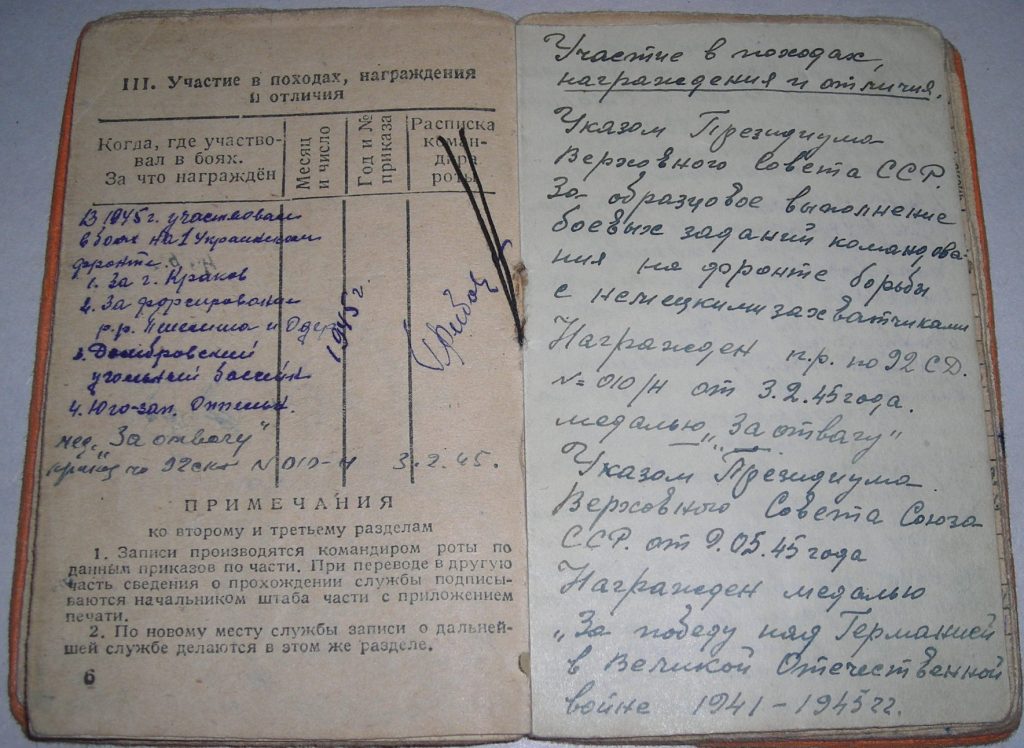 III. Участие в походах, награждения
и отличия
Когда, где участво-
вал в боях.
За что награждён
Месяц
и число
Год и №
приказа
Расписка
коман-
дира
роты
В 1945 г. участвовал
в боях на 1 Украинском
фронте.
1. За г. Краков
2. За форсирование
р.р. Пшемша и Одер
3. Домбровский
угольный бассейн
4. Юго-зап. Оппельн.
1945 г.
мед. „За отвагу"
приказ по 92 ск N 010-н 3.2.45.
ПРИМЕЧАНИЯ
ко второму и третьему разделам
1. Записи производятся командиром роты по
данным приказов по части. При переводе в другую
часть сведения о прохождении службы подписы-
ваются начальником штаба части с приложением
печати.
2. По новому месту службы записи о дальней-
шей службе делаются в этом же разделе.
6
Участие в походах,
награждения и отличия.
Указом Президиума
Верховного Совета ССР.
За образцовое выполнение
боевых заданий командова-
ния на фронте борьбы
с немецкими захватчиками
Награжден п.р. по 92 СД.
№ 010/Н от 3.2.45 года.
медалью „За отвагу"
Указом Президиума
Верховного Совета Союза
ССР. от 9.05.45 года
Награжден медалью
„За победу над Германией
в Великой Отечественной
войне 1941–1945 гг.